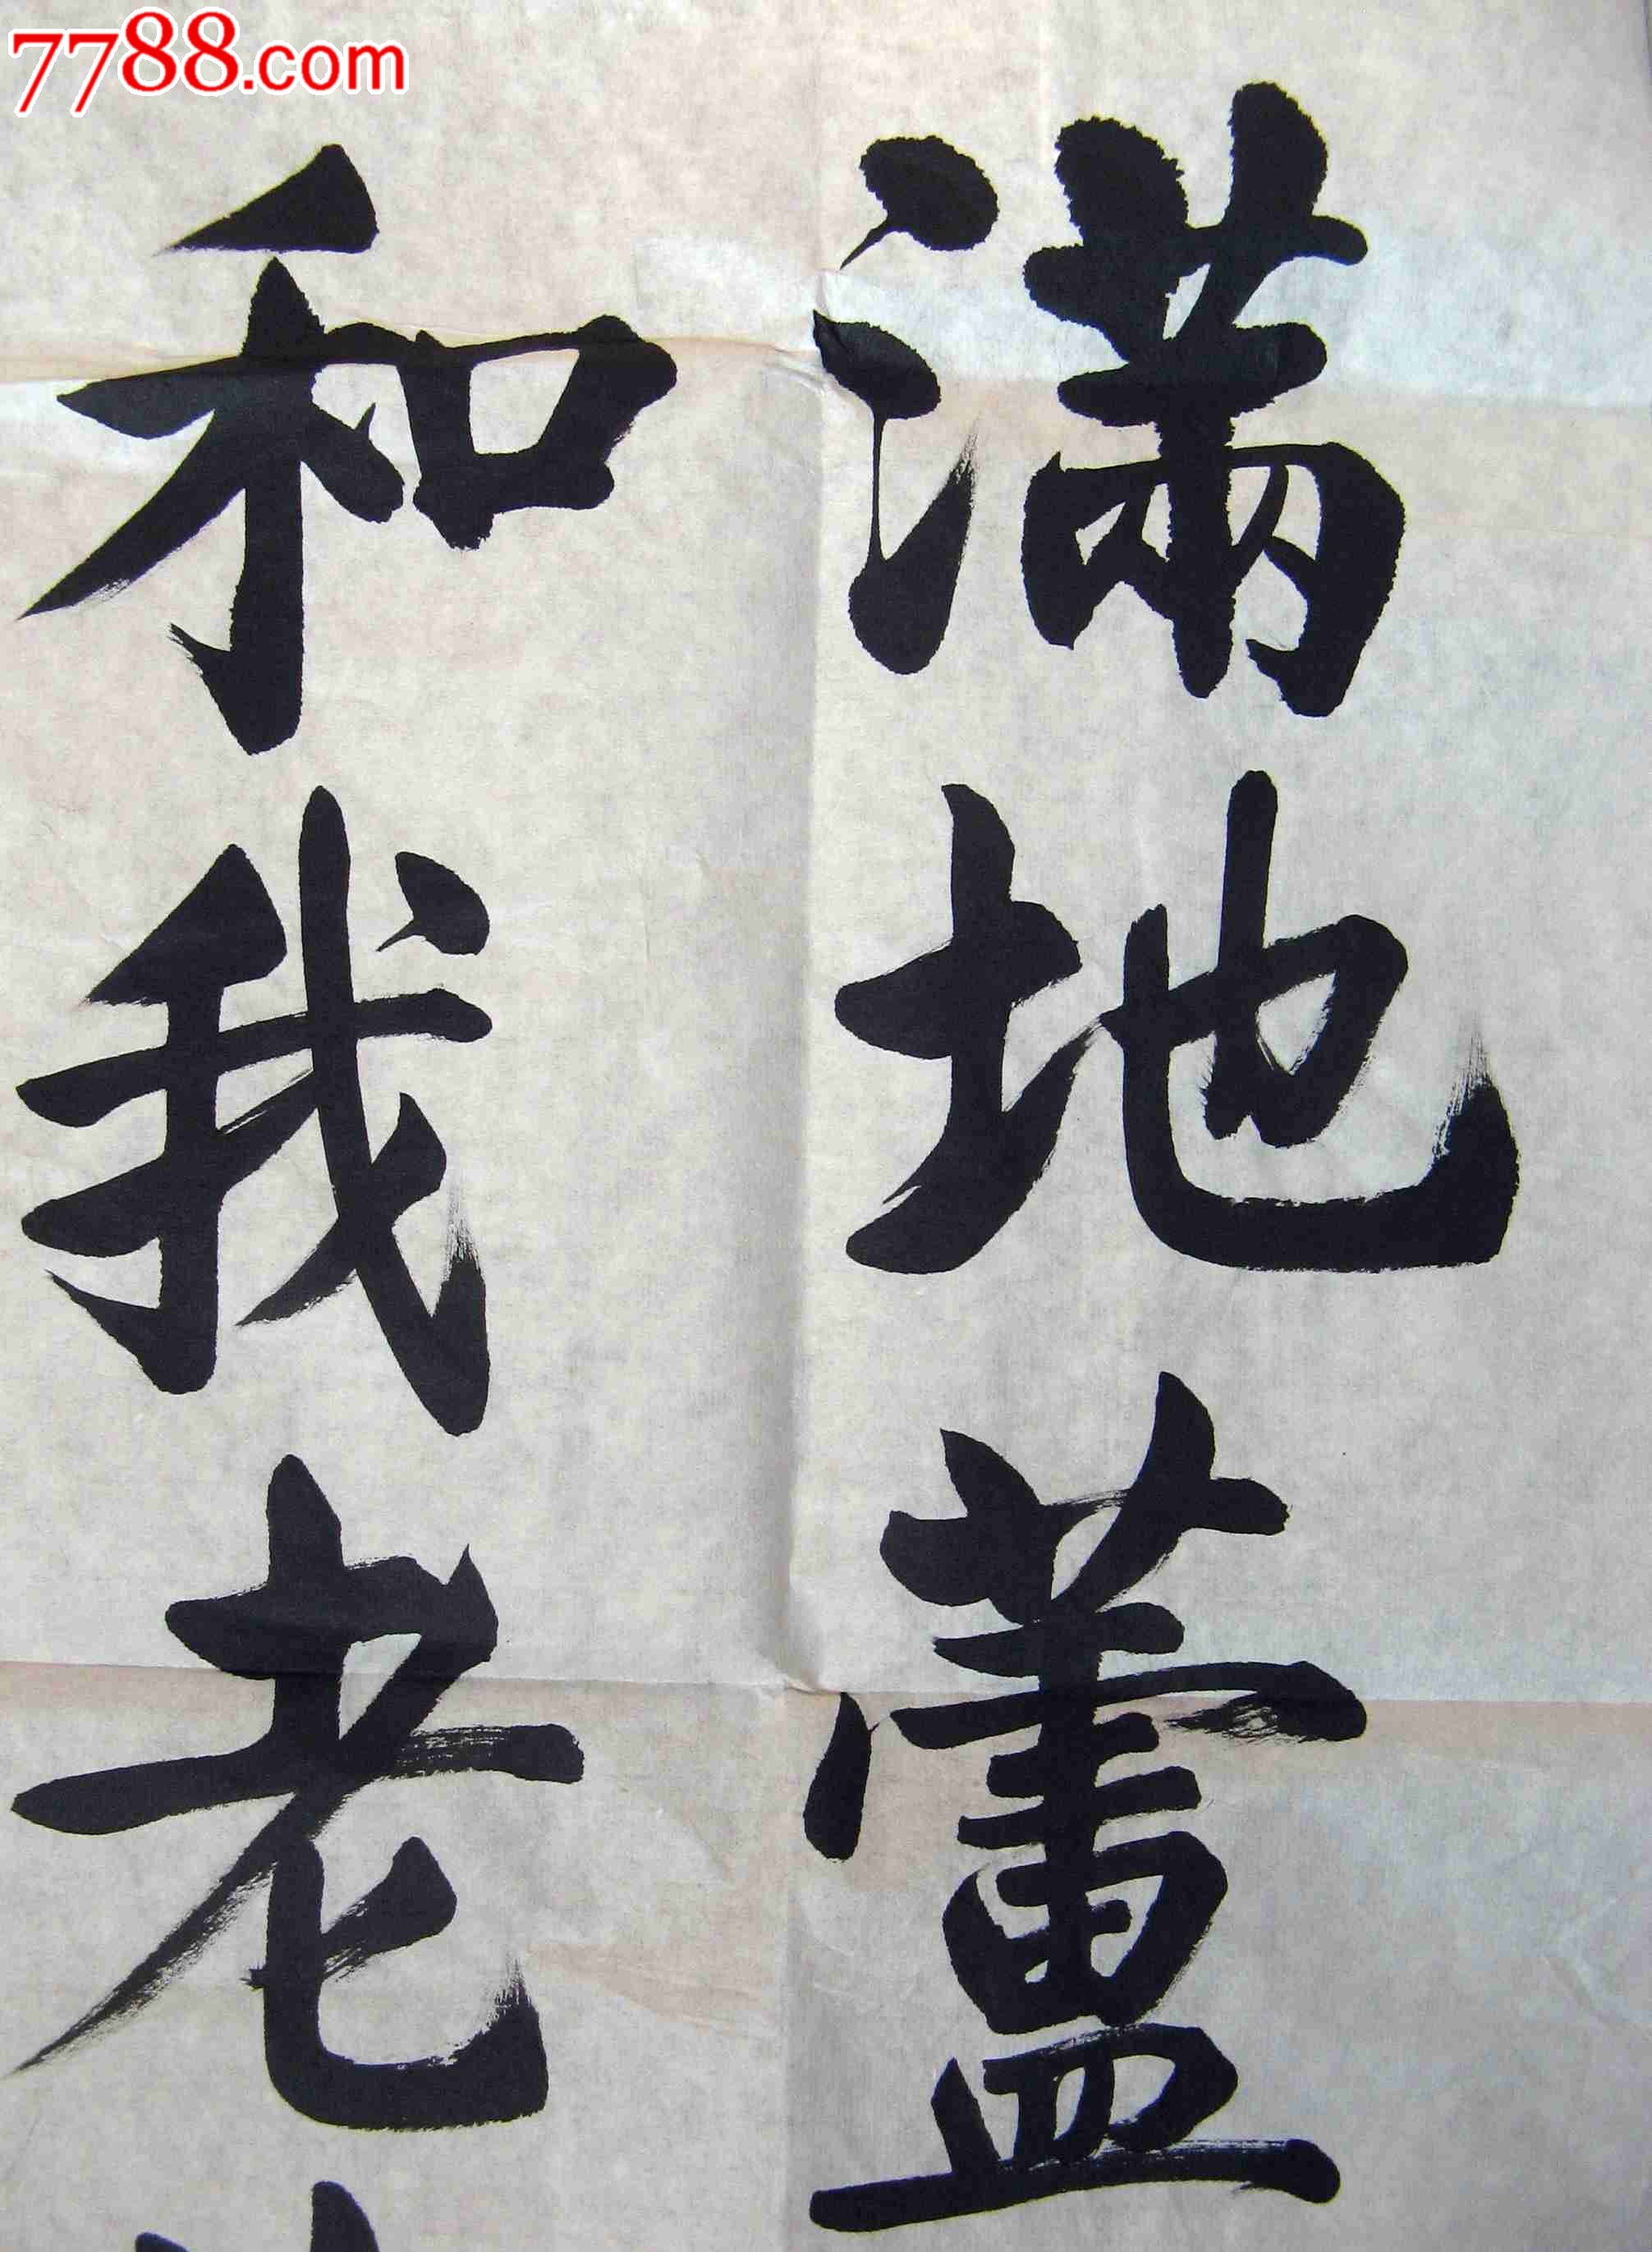 7788.com
滿地蘆
和我老